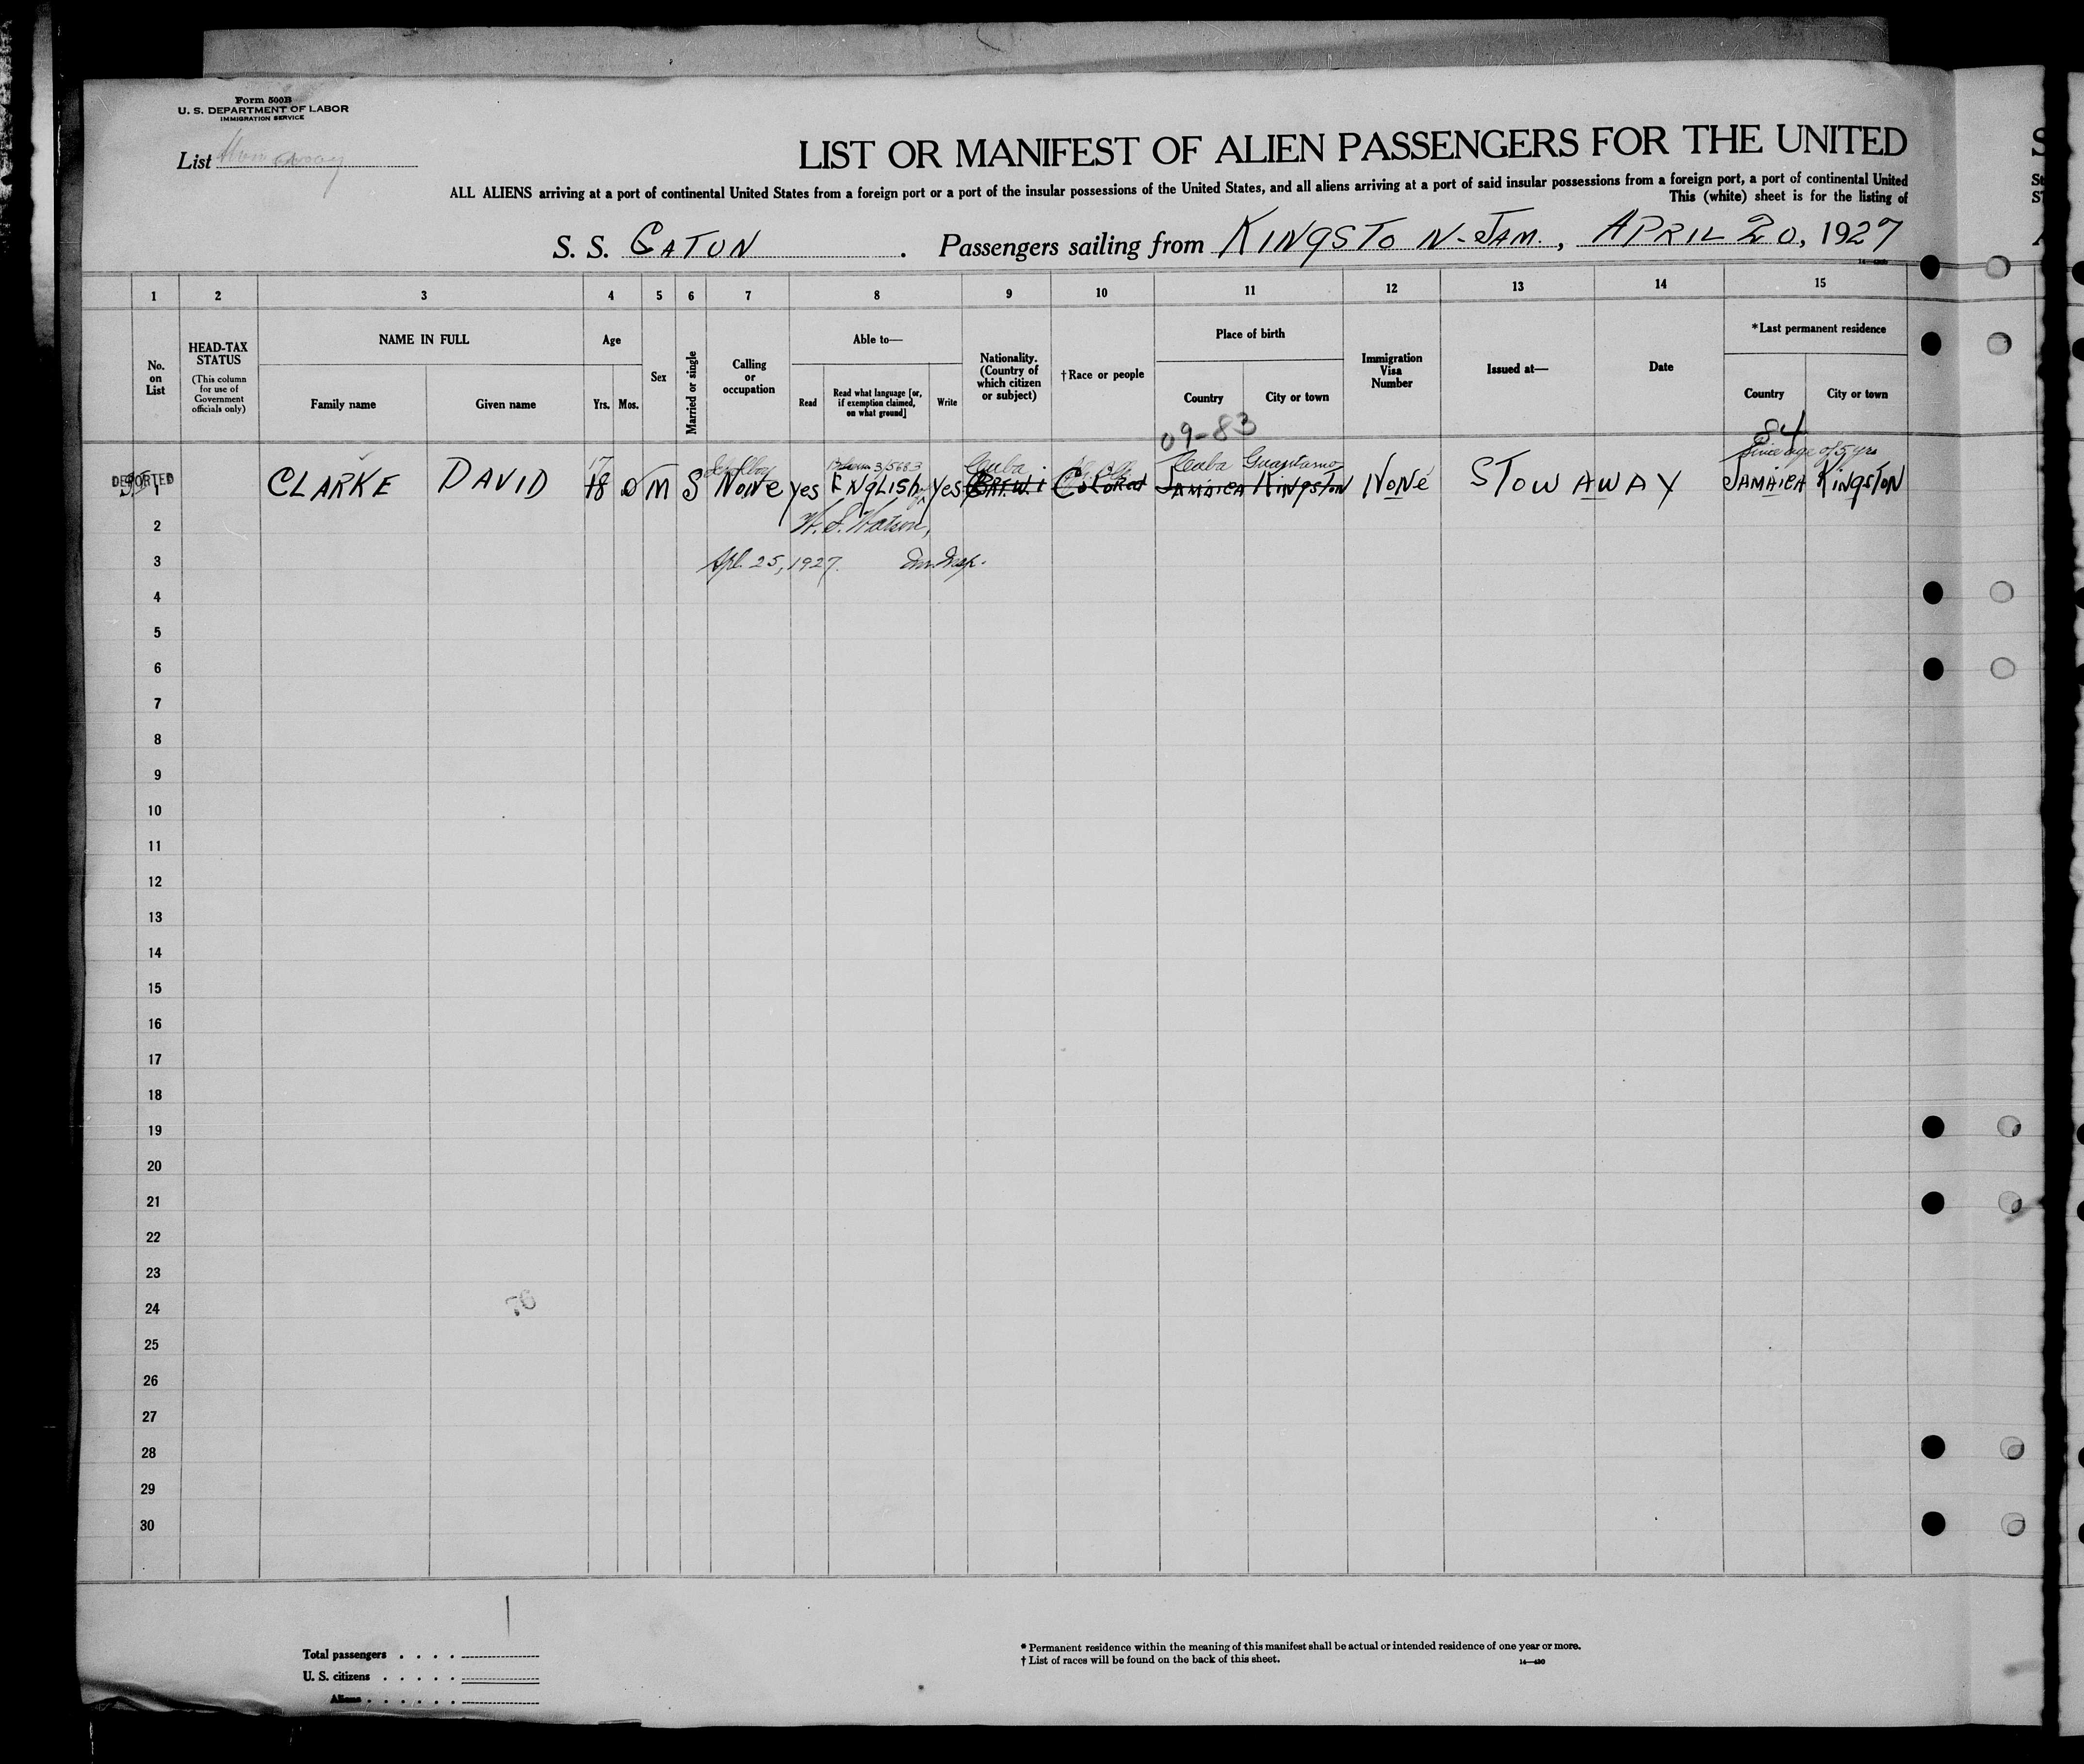 Form 500B
U. S. DEPARTMENT OF LABOR
IMMIGRATION SERVICE
List
LIST OR MANIFEST OF ALIEN PASSENGERS FOR THE UNITED
ALL ALIENS arriving at a port of continental United States from a foreign port or a port of the insular possessions of the United States, and all aliens arriving at a port of said insular possessions from a foreign port, a port of continental United
This (white) sheet is for the listing of
S. S. GATUN . Passengers sailing from KINGSTON-JAM., APRIL 20, 1927
1 2 3 4 5 6 7 8 9 10 11 12 13 14 15
No. on List
HEAD-TAX STATUS
(This column for use of Government officials only)
NAME IN FULL
Family name Given name
Age
Yrs. Mos.
Sex
Married or single
Calling or occupation
Able to—
Read
Read what language [or, if exemption claimed, on what ground]
Write
Nationality. (Country of which citizen or subject)
†Race or people
Place of birth
Country City or town
Immigration Visa Number
Issued at—
Date
*Last permanent residence
Country City or town
09-83
84
17 Cuba Cuba Guantanamo Since age of 5 yrs
DEPORTED
1 CLARKE DAVID 18 0 M S None yes ENGLISH yes B.W.I Colored JAMAICA KINGSTON None STOWAWAY JAMAICA KINGSTON
2 W. S. Watson,
3 Apl. 25, 1927. Im. Insp.
4
5
6
7
8
9
10
11
12
13
14
15
16
17
18
19
20
21
22
23
24
76
25
26
27
28
29
30
Total passengers . . . .
U. S. citizens . . . . .
Aliens . . . . . .
* Permanent residence within the meaning of this manifest shall be actual or intended residence of one year or more.
† List of races will be found on the back of this sheet.